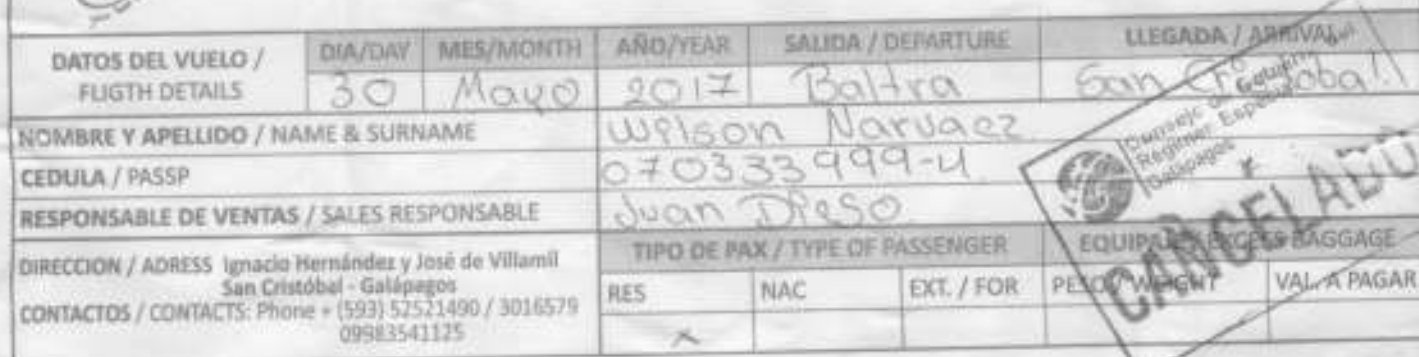 DATOS DEL VUELO / FLIGTH DETAILS
DIA/DAY MES/MONTH AÑO/YEAR SALIDA / DEPARTURE LLEGADA / ARRIVAL
30 Mayo 2017 Baltra San Cristobal
NOMBRE Y APELLIDO / NAME & SURNAME Wilson Narvaez
CEDULA / PASSP 070333999-4
RESPONSABLE DE VENTAS / SALES RESPONSABLE Juan Diego
DIRECCION / ADRESS Ignacio Hernández y José de Villamil
San Cristóbal - Galápagos
CONTACTOS / CONTACTS: Phone + (593) 52521490 / 3016579
09983541125
TIPO DE PAX / TYPE OF PASSENGER EQUIPAJE / EXCESS BAGGAGE
RES NAC EXT. / FOR PESO / WEIGHT VAL. A PAGAR
x
Consejo de Gobierno
Régimen Especial
Galápagos
CANCELADO